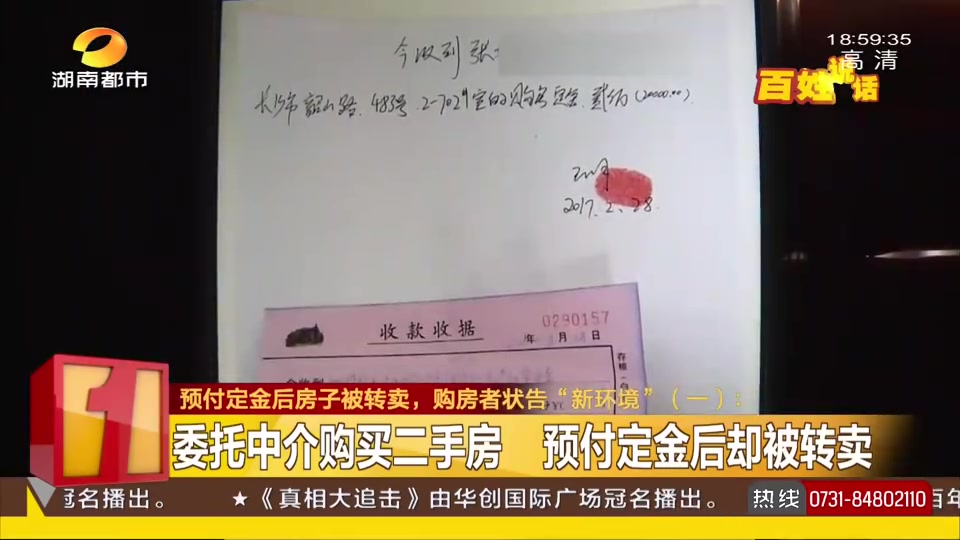 湖南都市
18:59:35
高清
百姓说话
今收到 张
长沙市韶山路 483号 2-702#室的购房定金 贰万(20000.00)
2017.2.28
收款收据
0290157
年 月 日
存根
预付定金后房子被转卖，购房者状告“新环境”（一）：
委托中介购买二手房 预付定金后却被转卖
冠名播出。 ★《真相大追击》由华创国际广场冠名播出。
热线 0731-84802110
百年